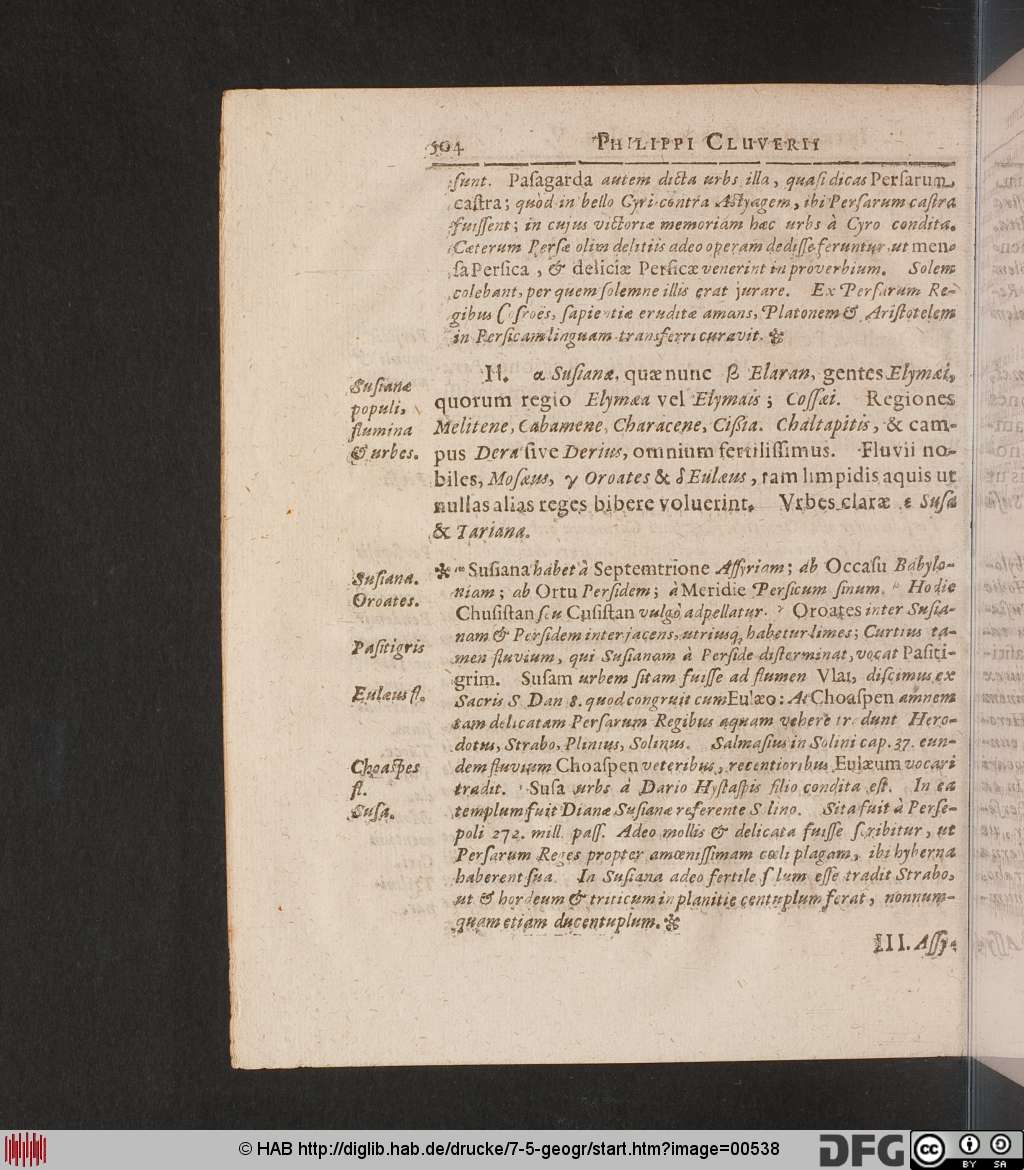 504 PHILIPPI CLUVERII
sunt. Pasagarda autem dicta urbs illa, quasi dicas Persarum
castra; quòd in bello Cyri contra Astyagem, ibi Persarum castra
fuissent; in cujus victoriæ memoriam hæc urbs à Cyro condita.
Cæterum Persæ olim delitiis adeo operam dedisse feruntur, ut men-
sa Persica, & deliciæ Persicæ venerint in proverbium. Solem
colebant, per quem solemne illis erat jurare. Ex Persarum Re-
gibus Cosroës, sapientiæ eruditæ amans, Platonem & Aristotelem
in Persicam linguam transferri curavit. ✻
II. α Susianæ, quæ nunc β Elaran, gentes Elymæi,
quorum regio Elymæa vel Elymais; Cossæi. Regiones
Melitene, Cabamene, Characene, Cißia. Chaltapitis, & cam-
pus Dera sive Derius, omnium fertilissimus. Fluvii no-
biles, Mosæus, γ Oroates & δ Eulæus, tam limpidis aquis ut
nullas alias reges bibere voluerint. Vrbes claræ ε Susa
& Tariana.
Susianæ
populi,
flumina
& urbes.
✻ α Susiana habet à Septemtrione Assyriam; ab Occasu Babylo-
niam; ab Ortu Persidem; à Meridie Persicum sinum. β Hodie
Chusistan seu Cusistan vulgò adpellatur. γ Oroates inter Susia-
nam & Persidem interjacens, utriusq; habetur limes; Curtius ta-
men fluvium, qui Susianam à Perside disterminat, vocat Pasiti-
grim. Susam urbem sitam fuisse ad flumen Vlai, discimus ex
Sacris S. Dan 8. quod congruit cum Eulæo: At Choaspen amnem
tam delicatam Persarum Regibus aquam vehere tradunt Hero-
dotus, Strabo, Plinius, Solinus. Salmasius in Solini cap. 37. eun-
dem fluvium Choaspen veteribus, recentioribus Eulæum vocari
tradit. Susa urbs à Dario Hystaspis filio condita est. In ea
templum fuit Dianæ Susianæ referente Solino. Sita fuit à Perse-
poli 272. mill. pass. Adeo mollis & delicata fuisse scribitur, ut
Persarum Reges propter amœnissimam cœli plagam, ibi hyberna
haberent sua. In Susiana adeo fertile solum esse tradit Strabo,
ut & hordeum & triticum in planitie centuplum ferat, nonnum-
quam etiam ducentuplum. ✻
Susiana.
Oroates.
Pasitigris
Eulæus fl.
Choaspes
fl.
Susa.
III. Assy-
© HAB http://diglib.hab.de/drucke/7-5-geogr/start.htm?image=00538
DFG
cc
BY SA